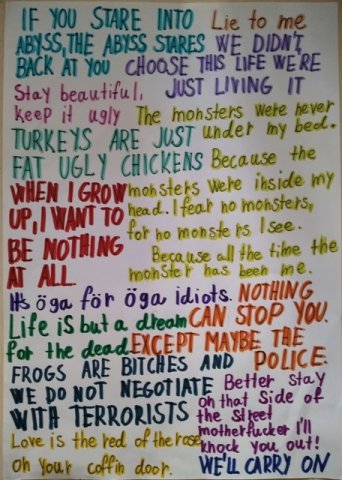 IF YOU STARE INTO
ABYSS, THE ABYSS STARES
BACK AT YOU
Lie to me
WE DIDN'T
CHOOSE THIS LIFE WE'RE
JUST LIVING IT
Stay beautiful,
keep it ugly
The monsters were never
under my bed.
TURKEYS ARE JUST
FAT UGLY CHICKENS
Because the
monsters were inside my
head. I fear no monsters,
for no monsters I see.
Because all the time the
monster has been me.
WHEN I GROW
UP, I WANT TO
BE NOTHING
AT ALL.
It's öga för öga idiots.
NOTHING
CAN STOP YOU.
EXCEPT MAYBE THE
POLICE.
Life is but a dream
for the dead.
FROGS ARE BITCHES AND
WE DO NOT NEGOTIATE
WITH TERRORISTS
Better stay
on that side of
the street
motherfucker I'll
knock you out!
Love is the red of the rose
on your coffin door.
WE'LL CARRY ON